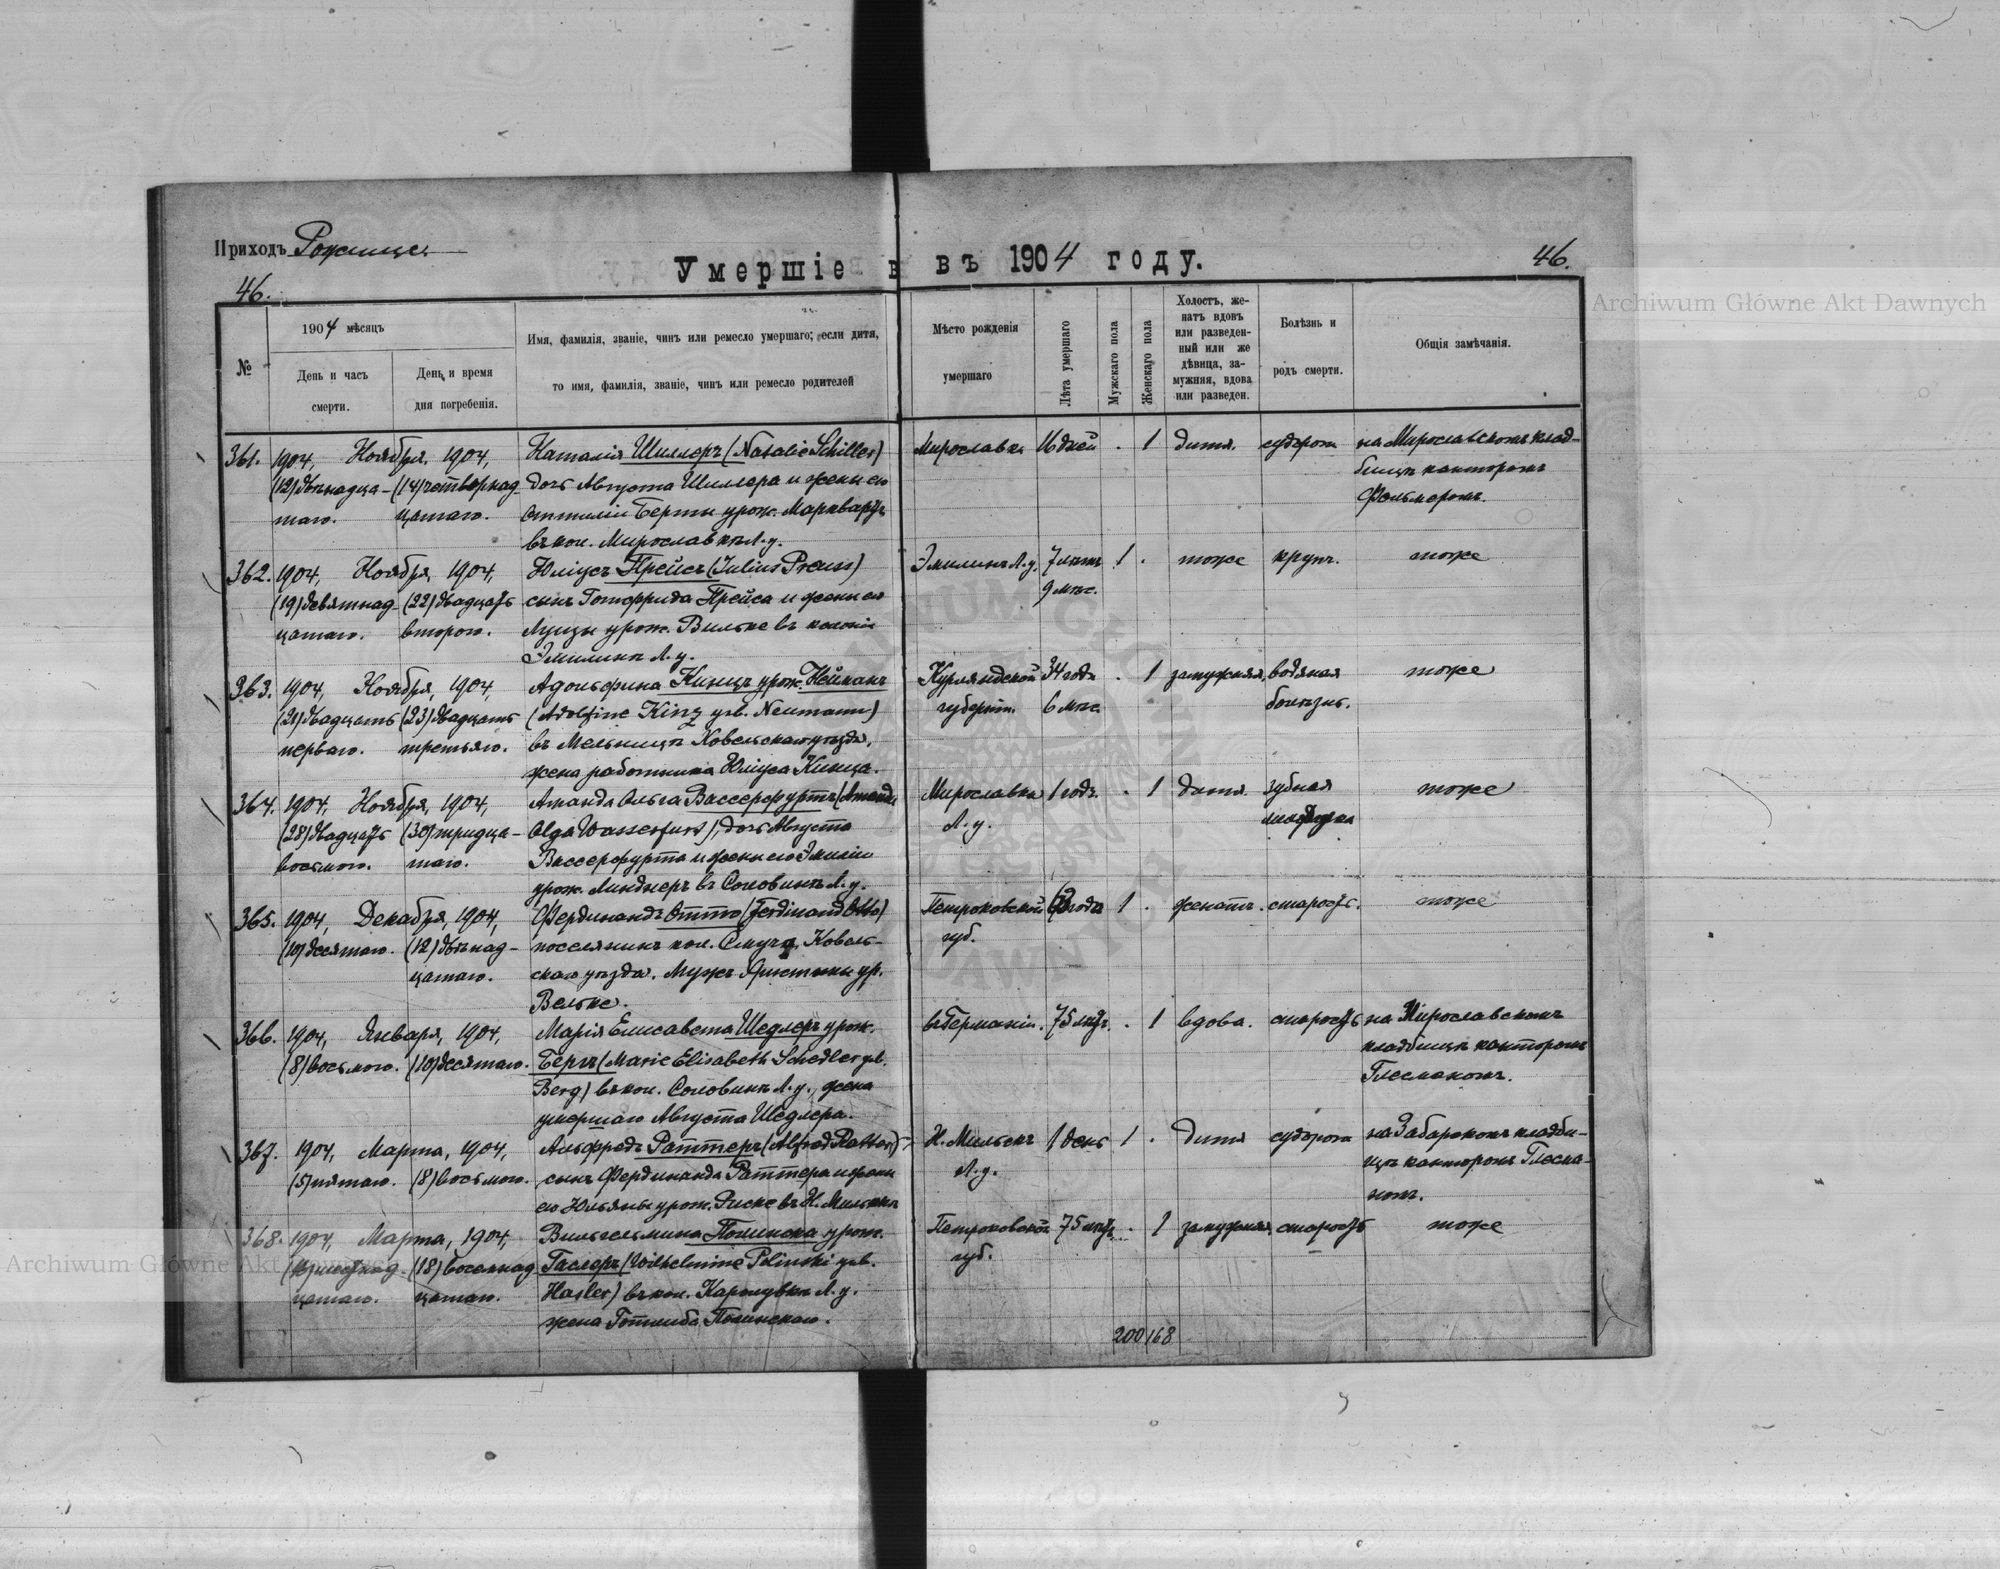 Приходъ Рожище.
Умершіе в въ 1904 году.
46.
46.
№
1904 мѣсяцъ
День и часъ смерти.
День и время дня погребенія.
Имя, фамилія, званіе, чинъ или ремесло умершаго; если дитя,
то имя, фамилія, званіе, чинъ или ремесло родителей
Мѣсто рожденія умершаго
Лѣта умершаго
Мужскаго пола
Женскаго пола
Холостъ, же-
натъ вдовъ
или разведен-
ный или же
дѣвица, за-
мужняя, вдова
или разведен.
Болѣзнь и родъ смерти.
Общія замѣчанія.
361. 1904, Ноября, 1904, Наталія Шиллеръ (Natalie Schiller) Мирославка 16 дней . 1 дитя. судорога на Мирославскомъ клад-
(12) двѣнадца- (14) четвернад- дочь Августа Шиллера и жены его бищѣ канторомъ
таго. цатаго. Оттиліи Берты урож. Марквартъ Фольмеромъ.
въ кол. Мирославкѣ Л. у.
362. 1904, Ноября, 1904, Юліусъ Прейсъ (Julius Preuss) Эмилинъ Л. у. 7 лѣтъ 1 . тоже крупъ. тоже
(19) девятнад- (22) двадцать сынъ Готфрида Прейса и жены его 9 мѣс.
цатаго. второго. Луизы урож. Вильке въ колоніи
Эмилинѣ Л. у.
363. 1904, Ноября, 1904, Адольфина Кинцъ урож. Нейманъ Курляндской 34 года . 1 замужняя. водяная тоже
(21) двадцать (23) двадцать (Adolfine Kinz geb. Neumann) губерніи. 6 мѣс. болѣзнь.
перваго. третьяго. въ Мельницѣ Ковельскаго уѣзда,
жена работника Юліуса Кинца.
364. 1904, Ноября, 1904, Аманда Ольга Вассерфуртъ (Amanda Мирославка 1 годъ. . 1 дитя. зубная тоже
(28) двадцать (30) тридца- Olga Wasserfurt), дочь Августа Л. у.
восьмого. таго. Вассерфурта и жены его Эмиліи
урож. Линднеръ въ Соловинѣ Л. у.
365. 1904, Декабря, 1904, Фердинандъ Отто (Ferdinand Otto) Петроковской года 1 . женатъ. старость. тоже
(10) десятаго. (12) двѣнад- поселянинъ кол. Ковель- губ.
цатаго. скаго уѣзда. Мужъ Христины ур.
Вельке.
366. 1904, Января, 1904, Марія Елисавета Шедлеръ урож. въ Германіи. 75 лѣтъ. . 1 вдова. старость на Мирославскомъ
(8) восьмого. (10) десятаго. Бергъ (Marie Elisabeth Schedler geb. кладбищѣ канторомъ
Berg) въ кол. Соловинѣ Л. у., жена Глесманомъ.
умершаго Августа Шедлера.
367. 1904, Марта, 1904, Альфредъ Раттеръ (Alfred Ratter) Н. Мильскъ 1 день 1 . дитя судорога на Забарокомъ кладби-
(5) пятаго. (8) восьмого. сынъ Фердинанда Раттера и жены Л. у. щѣ канторомъ Глесма-
его Юльяны урож. Риске въ Н. Мильскѣ номъ.
368. 1904, Марта, 1904, Вильгельмина Полинска урож. Петроковской 75 лѣтъ. . 1 замужняя старость тоже
(18) восемнад- Гаслеръ (Wilhelmine Polinski geb. губ.
цатаго. цатаго. Hasler) въ кол. Каролувкѣ Л. у.
жена Готлиба Полинскаго.
200 168
Archiwum Główne Akt Dawnych
Archiwum Główne Akt Dawnych